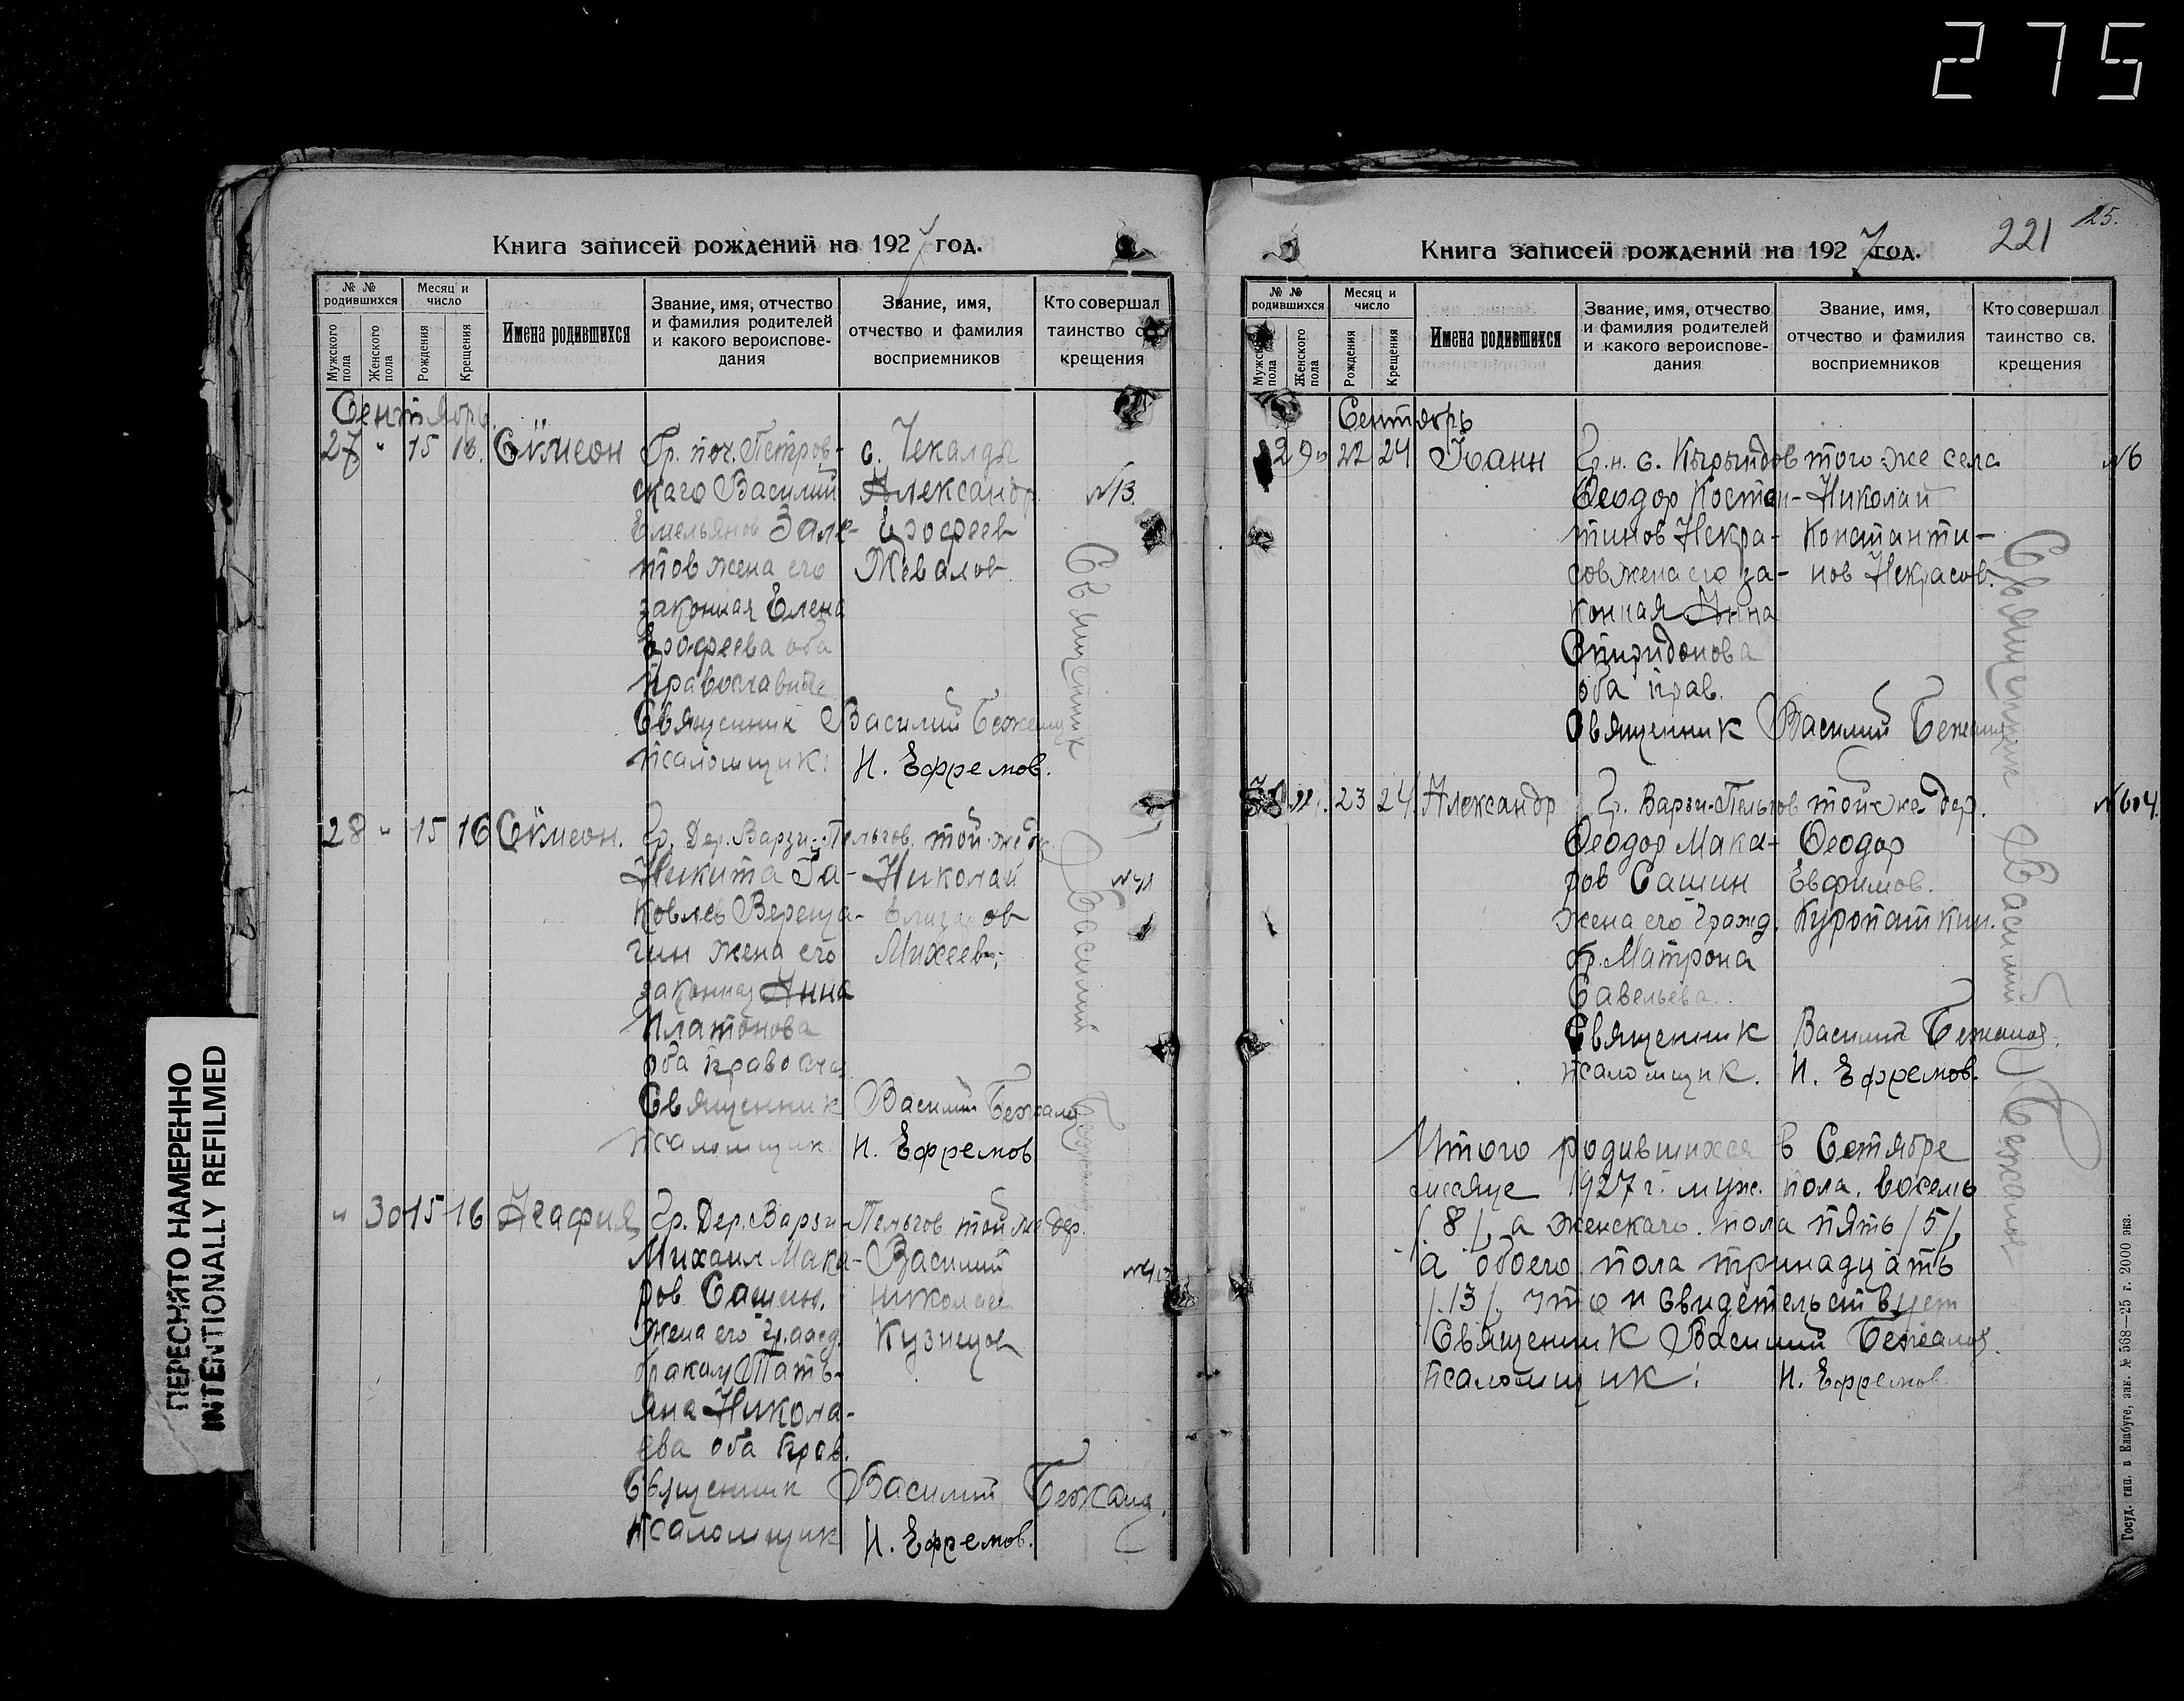 275
ПЕРЕСНЯТО НАМЕРЕННО
INTENTIONALLY REFILMED
Книга записей рождений на 1927 год.
№ № родившихся
Мужского пола
Женского пола
Месяц и число
Рождения
Крещения
Имена родившихся
Звание, имя, отчество и фамилия родителей и какого вероисповедания
Звание, имя, отчество и фамилия восприемников
Кто совершал таинство св. крещения
Сентябрь
27 " 15 16. Симеон Гр. поч. Петров- с. Чекалды
скаго Василий Александр №13
Емельянов Ерофеев
тов жена его Жевалов
законная Елена
Ерофеева оба
православные
Священник Василий
псаломщик: И. Ефремов.
28 " 15 16 Симеон. Гр. Дер. Варзи-Пельгов. той-же д.
Никита Я- Николай
ковлев Вереща- ов
гин жена его Михеев
законная Анна
Платонова
оба правосл
Священник Василий Бежанов
псаломщик И. Ефремов
" 30 15 16 Агафия Гр. Дер. Варзи-Пельгов той же дер.
Михаил Мака- Василий
ров Сашин. Николаев
жена его гражд. Кузнецов
браком Тать-
яна Никола-
ева оба прав.
Священник Василий Бежанов
псаломщик И. Ефремов.
Священник Василий
221
25.
Книга записей рождений на 1927 год.
№ № родившихся
Мужск пола
Женского пола
Месяц и число
Рождения
Крещения
Имена родившихся
Звание, имя, отчество и фамилия родителей и какого вероисповедания
Звание, имя, отчество и фамилия восприемников
Кто совершал таинство св. крещения
Сентябрь
29 " 22 24 Иоанн Гр. н. с. Кырындов того-же села №6
Феодор Констан- Николай
тинов Некра- Константи-
сов жена его за- нов Некрасов.
конная Анна
Спиридонова
оба прав.
Священник Василий Бежанов
23 24 Александр Гр. Варзи-Пельгов той-же дер.
Феодор Мака- Феодор
ров Сашин Евфимов.
жена его гражд. Куропаткин.
бр. Матрона
Савельева.
Священник Василий Бежанов.
псаломщик. И. Ефремов.
Итого родившихся в Сетябре
месяце 1927 г. муж. пола. восемь
/8/, а женскаго пола пять /5/,
а обоего пола тринадцать
/13/, что и свидетельствует
Священник Василий Бежанов.
псаломщик: И. Ефремов
Священник Василий Бежанов
Госуд. тип. в Елабуге, зак. № 568—25 г. 2000 экз.